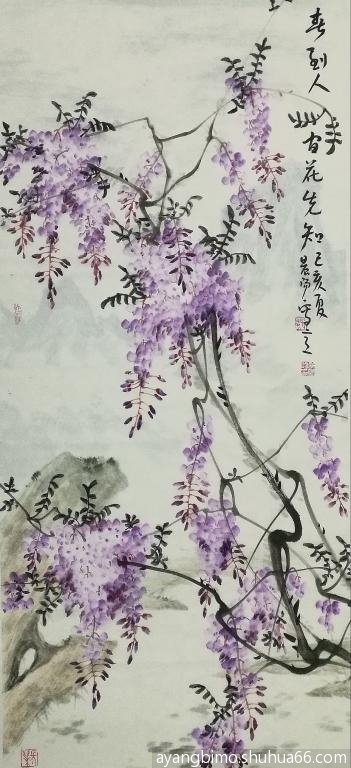 春到人
间花先知己亥夏
ayangbimo.shuhua66.com